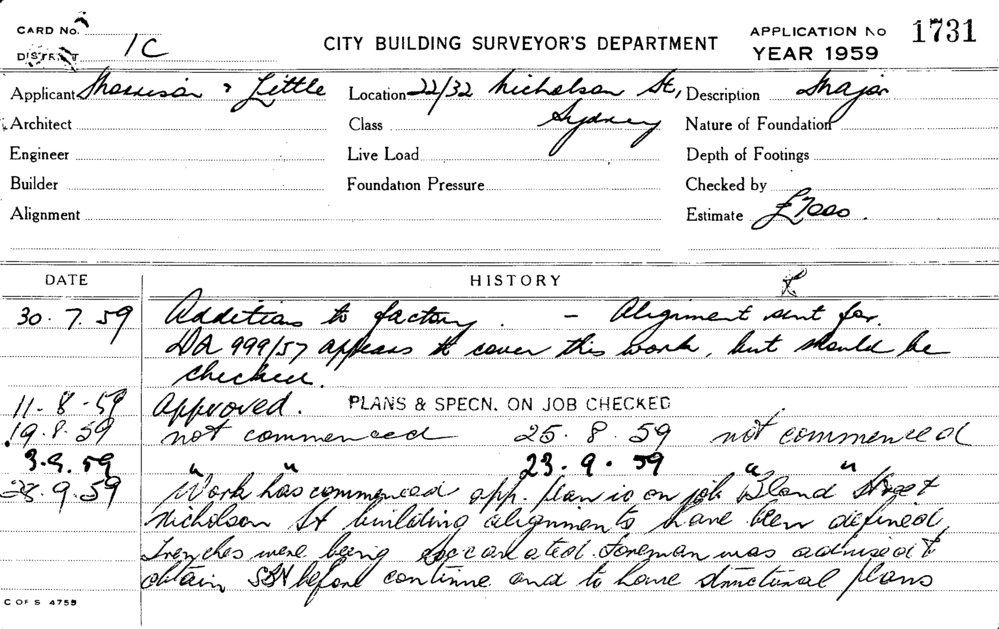 CARD No.
DISTRICT 1C
CITY BUILDING SURVEYOR'S DEPARTMENT
APPLICATION No 1731
YEAR 1959
Applicant Morrison & Little Location 22/32 Nicholson St, Sydney Description Major
Architect Class Nature of Foundation
Engineer Live Load Depth of Footings
Builder Foundation Pressure Checked by
Alignment Estimate £7000.
DATE HISTORY
30.7.59 Additions to factory. - Alignment sent for.
DA 999/57 appears to cover this work, but should be
checked.
11.8.59 Approved. PLANS & SPECN. ON JOB CHECKED
19.8.59 not commenced 25.8.59 not commenced
3.9.59 " " 23.9.59 " "
28.9.59 Work has commenced app. plan is on job Bland Street
Nicholson St building alignments have been defined,
Trenches were being excavated. Foreman was advised to
obtain before continue and to have structural plans
C OF S 4759